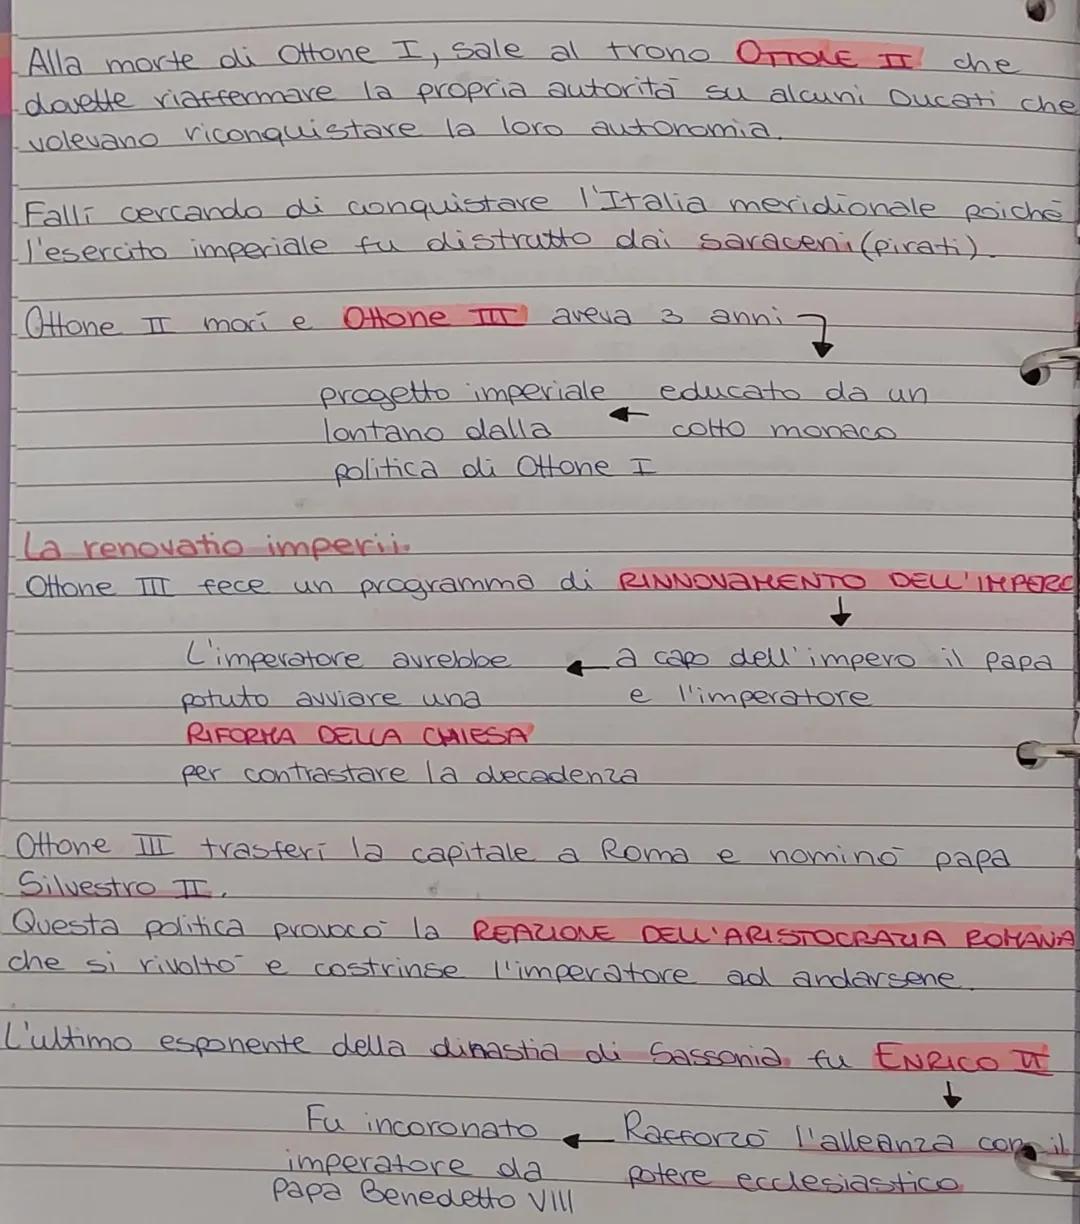 Alla morte di Ottone I, sale al trono OTTONE II che
dovette riaffermare la propria autorità su alcuni Ducati che
volevano riconquistare la loro autonomia.
Fallì cercando di conquistare l'Italia meridionale poiché
l'esercito imperiale fu distrutto dai saraceni (pirati).
Ottone II morì e Ottone III aveva 3 anni
progetto imperiale educato da un
lontano dalla colto monaco
politica di Ottone I
La renovatio imperii.
Ottone III fece un programma di RINNOVAMENTO DELL'IMPERO
L'imperatore avrebbe a capo dell'impero il papa
potuto avviare una e l'imperatore
RIFORMA DELLA CHIESA
per contrastare la decadenza
Ottone III trasferì la capitale a Roma e nominò papa
Silvestro II.
Questa politica provocò la REAZIONE DELL'ARISTOCRAZIA ROMANA
che si rivoltò e costrinse l'imperatore ad andarsene.
L'ultimo esponente della dinastia di Sassonia fu ENRICO II
Fu incoronato Rafforzò l'alleanza con il
imperatore da potere ecclesiastico
Papa Benedetto VIII